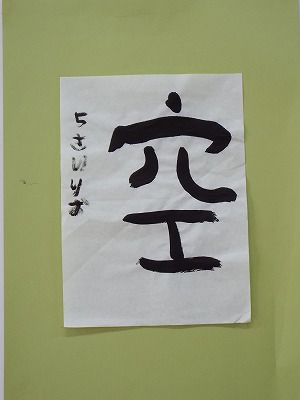 空
5さいりお